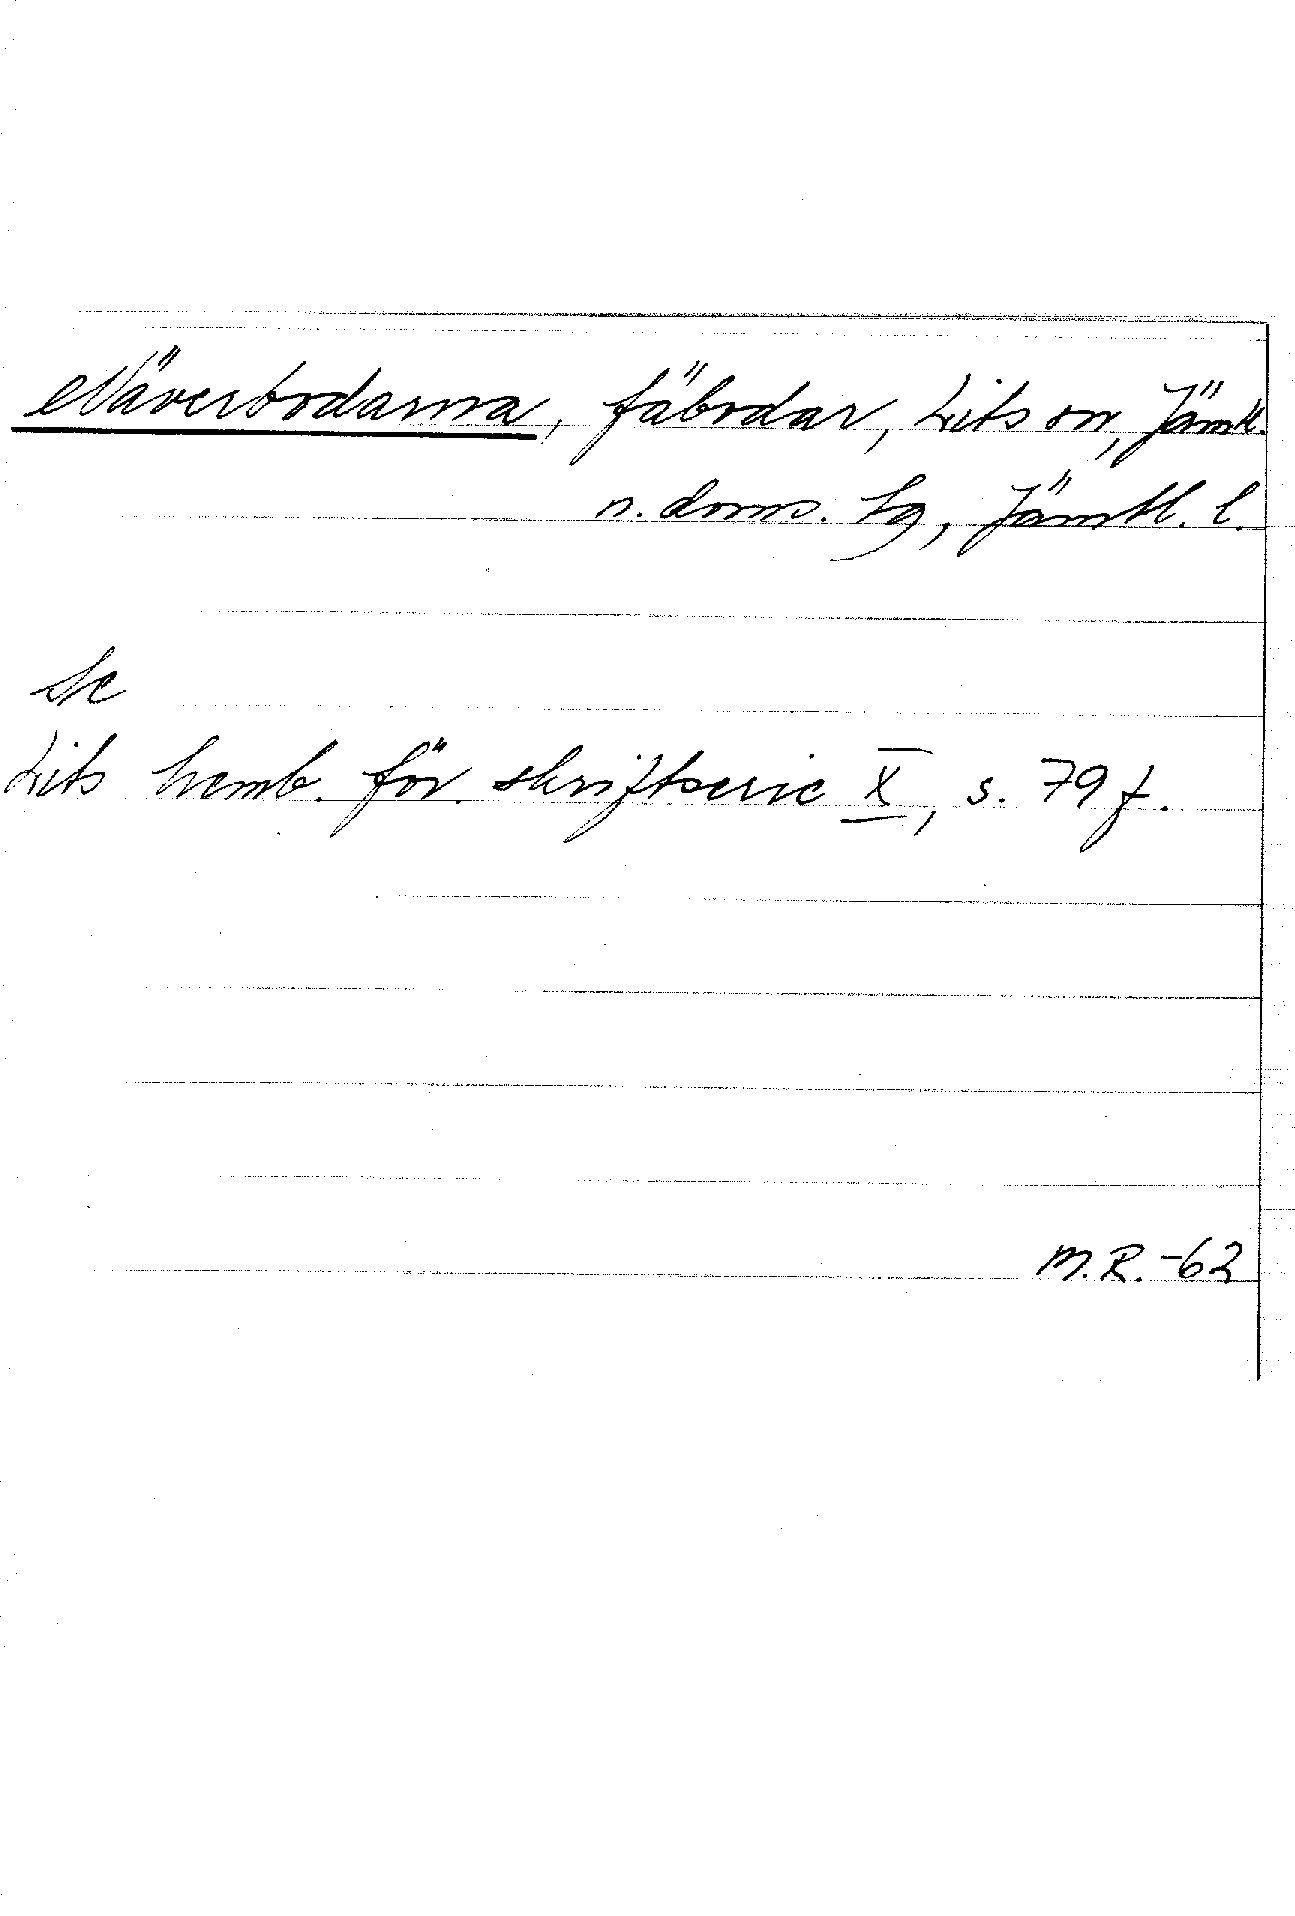 Näverbodarna, fäbodar, Lits sn, Jämtl.
n. doms. hg, Jämtl. l.
Se
Lits hemb. för. skriftserie X, s. 79 f.
M.R. -62